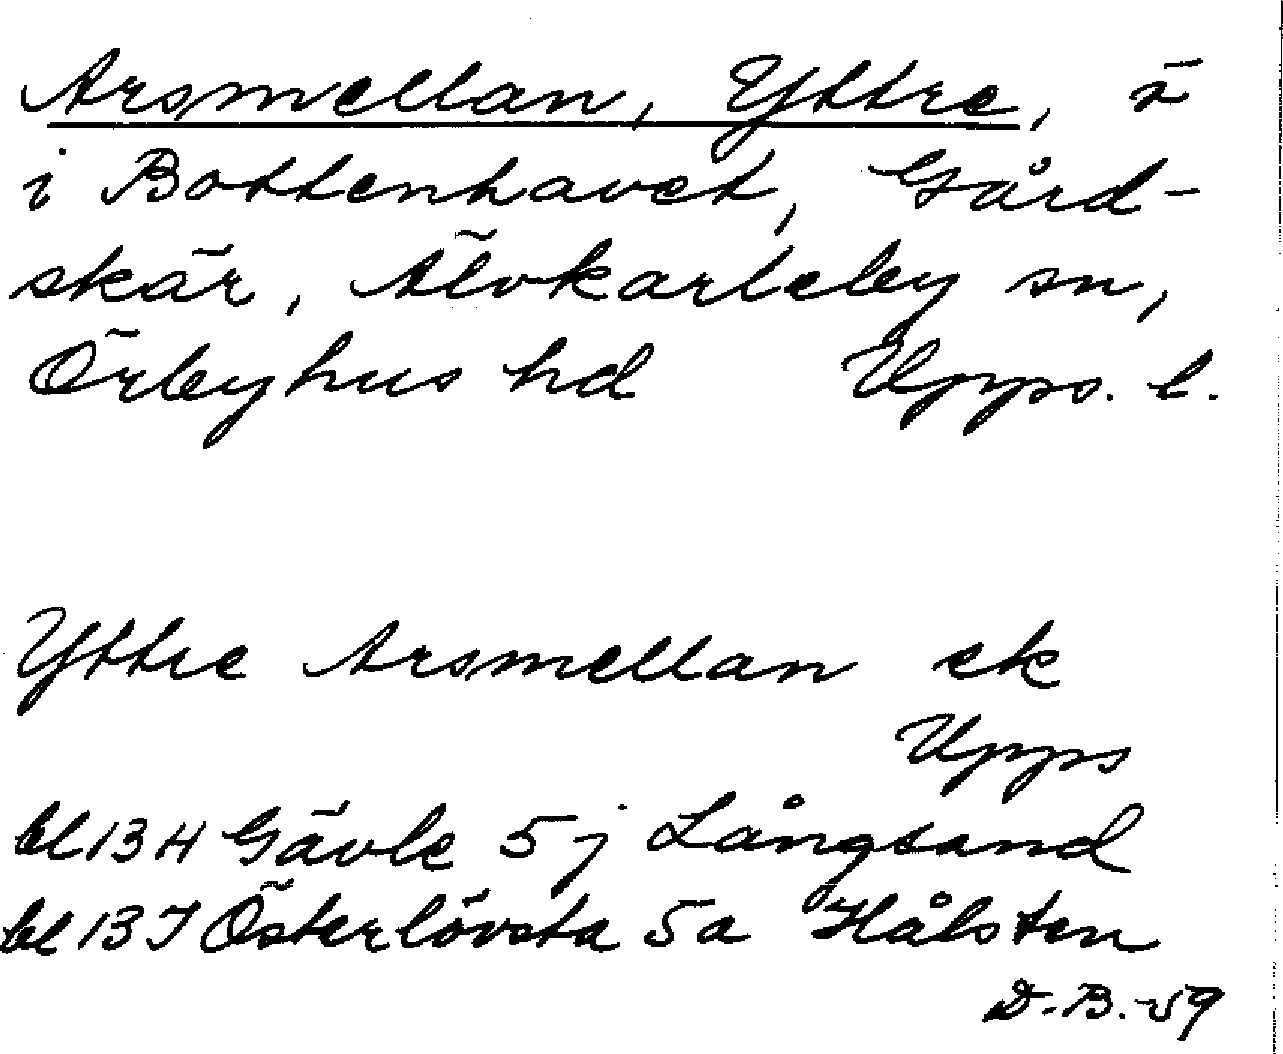 Arsmellan, Yttre, ö
i Bottenhavet, Gård-
skär, Älvkarleby sn,
Örbyhus hd Upps. l.
Yttre Arsmellan ek
Upps
bl 13 H Gävle 5 j Långsand
bl 13 I Österlövsta 5 a Hålsten
D.B.-59